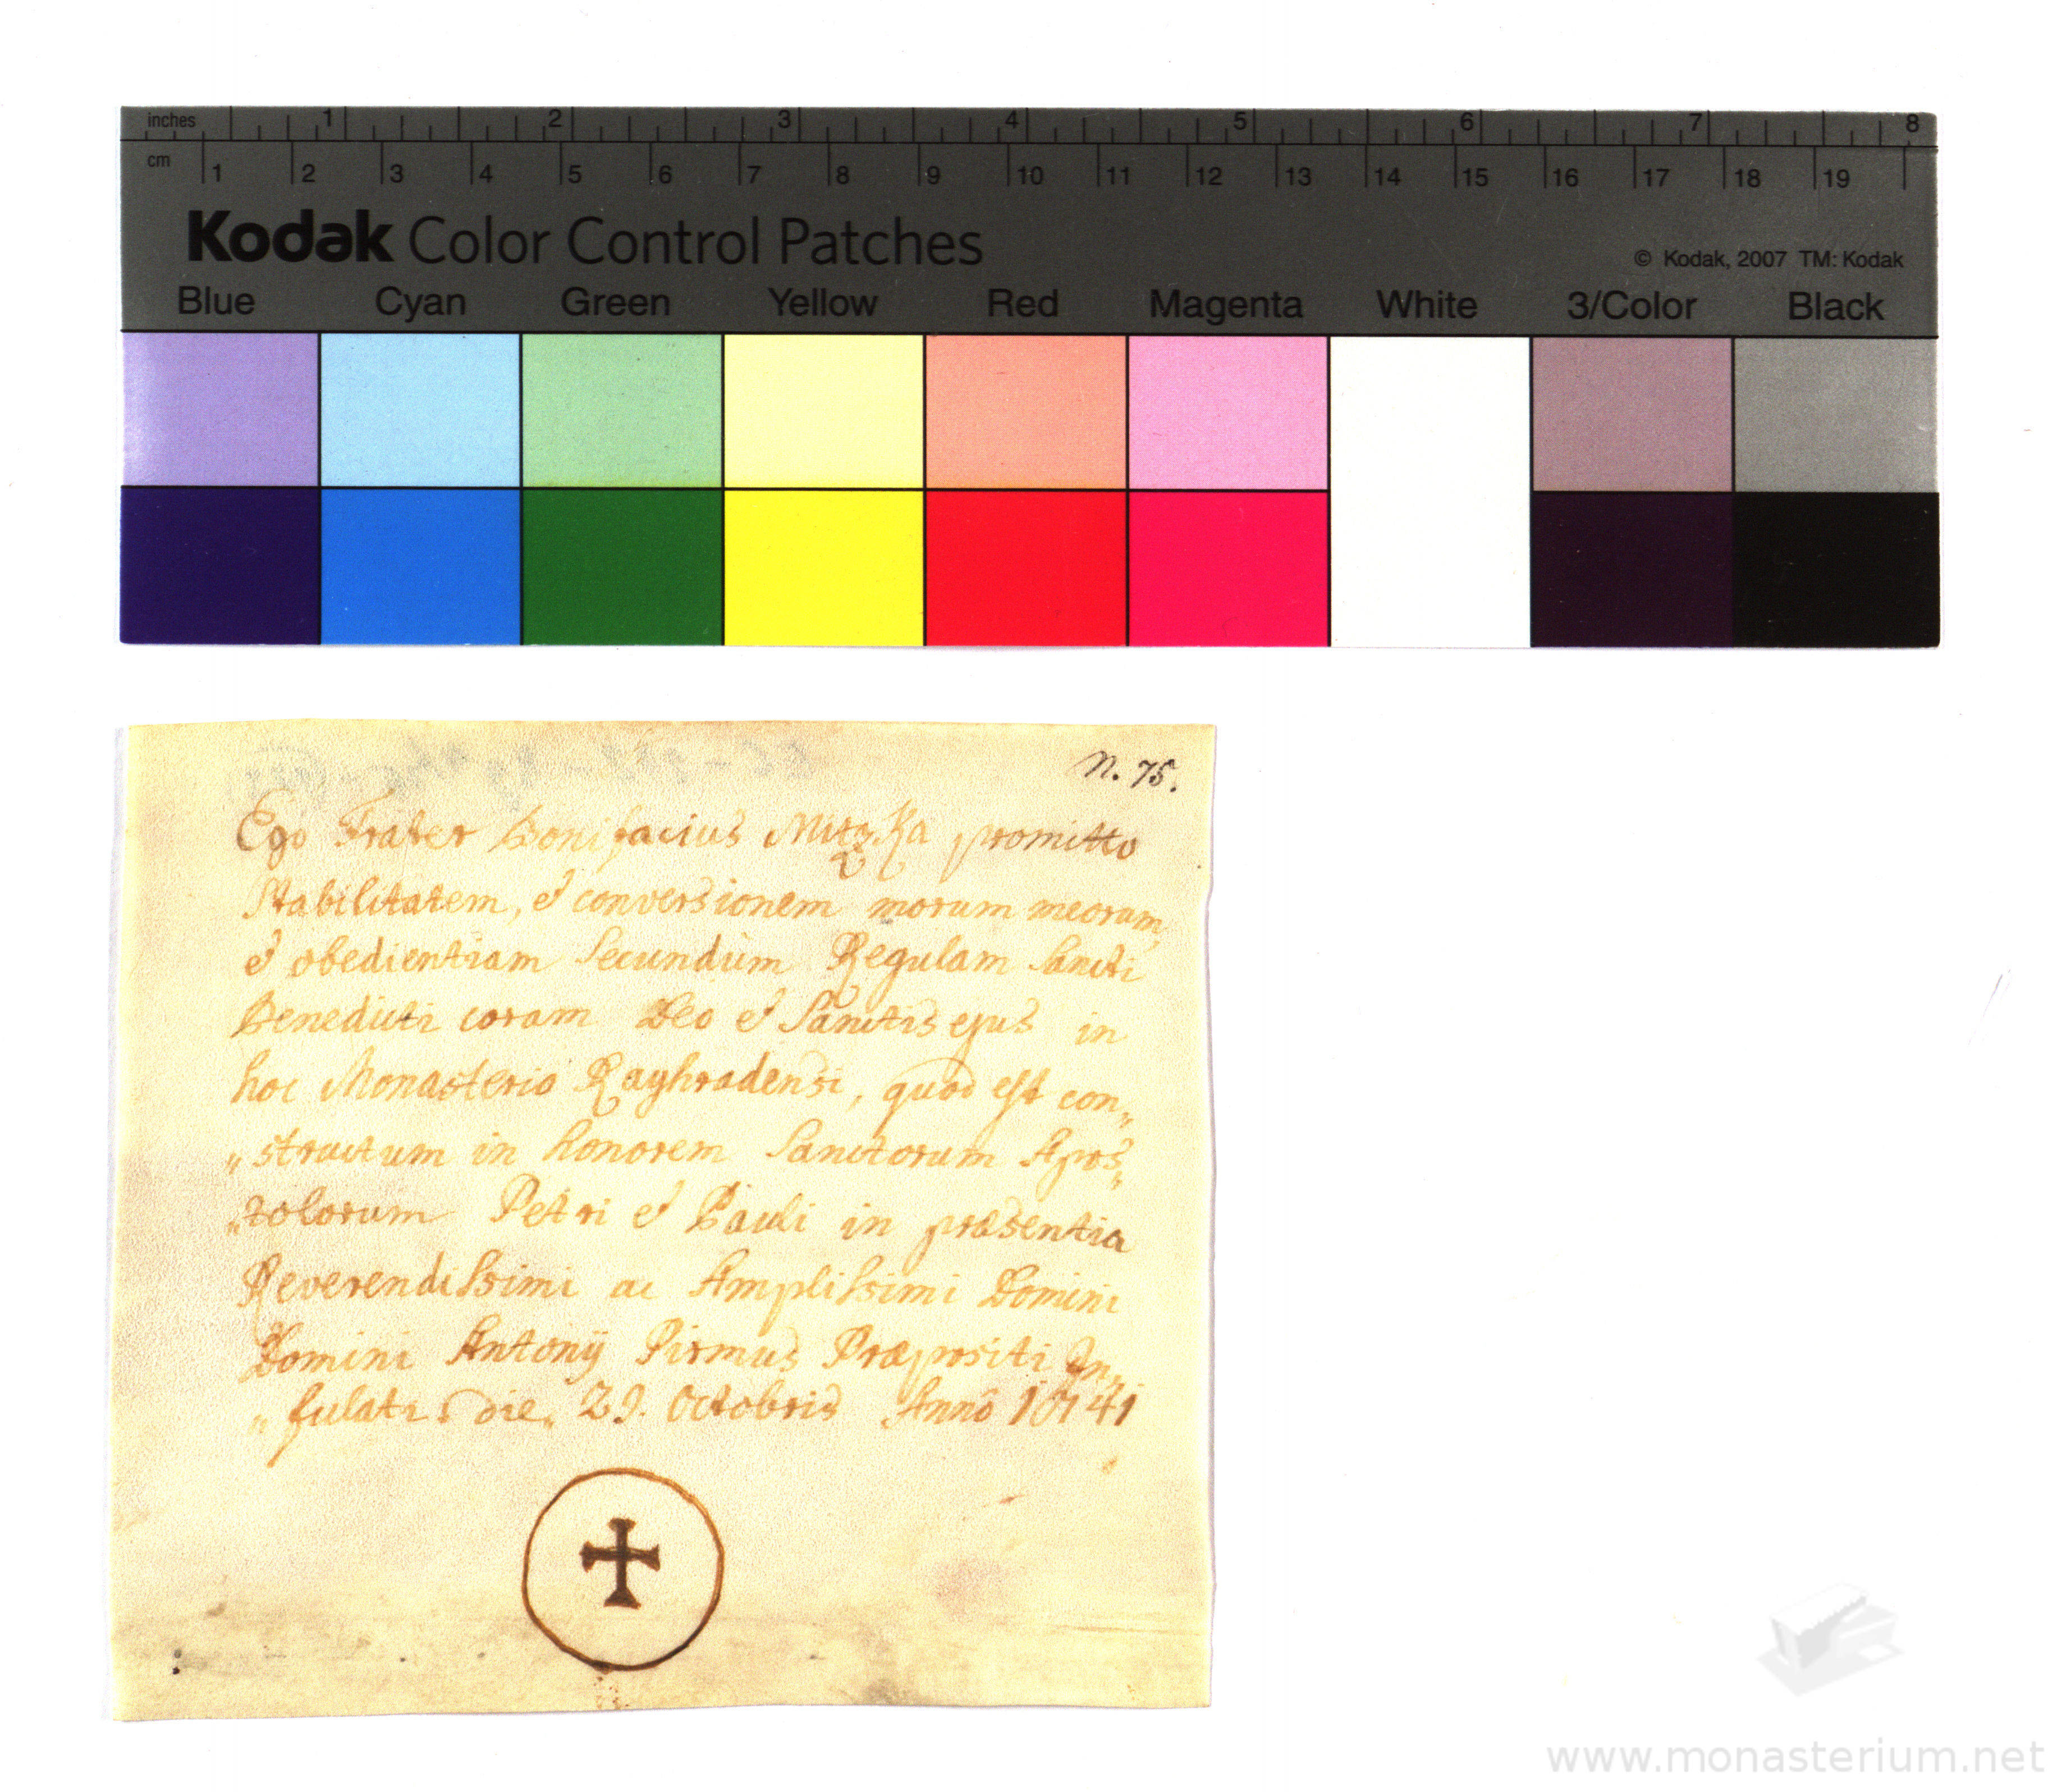 inches 1 2 3 4 5 6 7 8
cm 1 2 3 4 5 6 7 8 9 10 11 12 13 14 15 16 17 18 19
Kodak Color Control Patches
© Kodak, 2007 TM: Kodak
Blue Cyan Green Yellow Red Magenta White 3/Color Black
N. 75.
Ego Frater Bonifacius promitto
Stabilitatem, et conversionem morum meorum,
et obedientiam Secundùm Regulam Sancti
Benedicti coram Deo et Sanctis ejus in
hoc Monasterio Rayhradensi, quod est con„
„structum in honorem Sanctorum Apos„
„tolorum Petri et Pauli in præsentia
Reverendissimi ac Amplissimi Domini
Domini Antonij Pirmus Præpositi In„
„fulati die 29. Octobris Annô 1741
www.monasterium.net